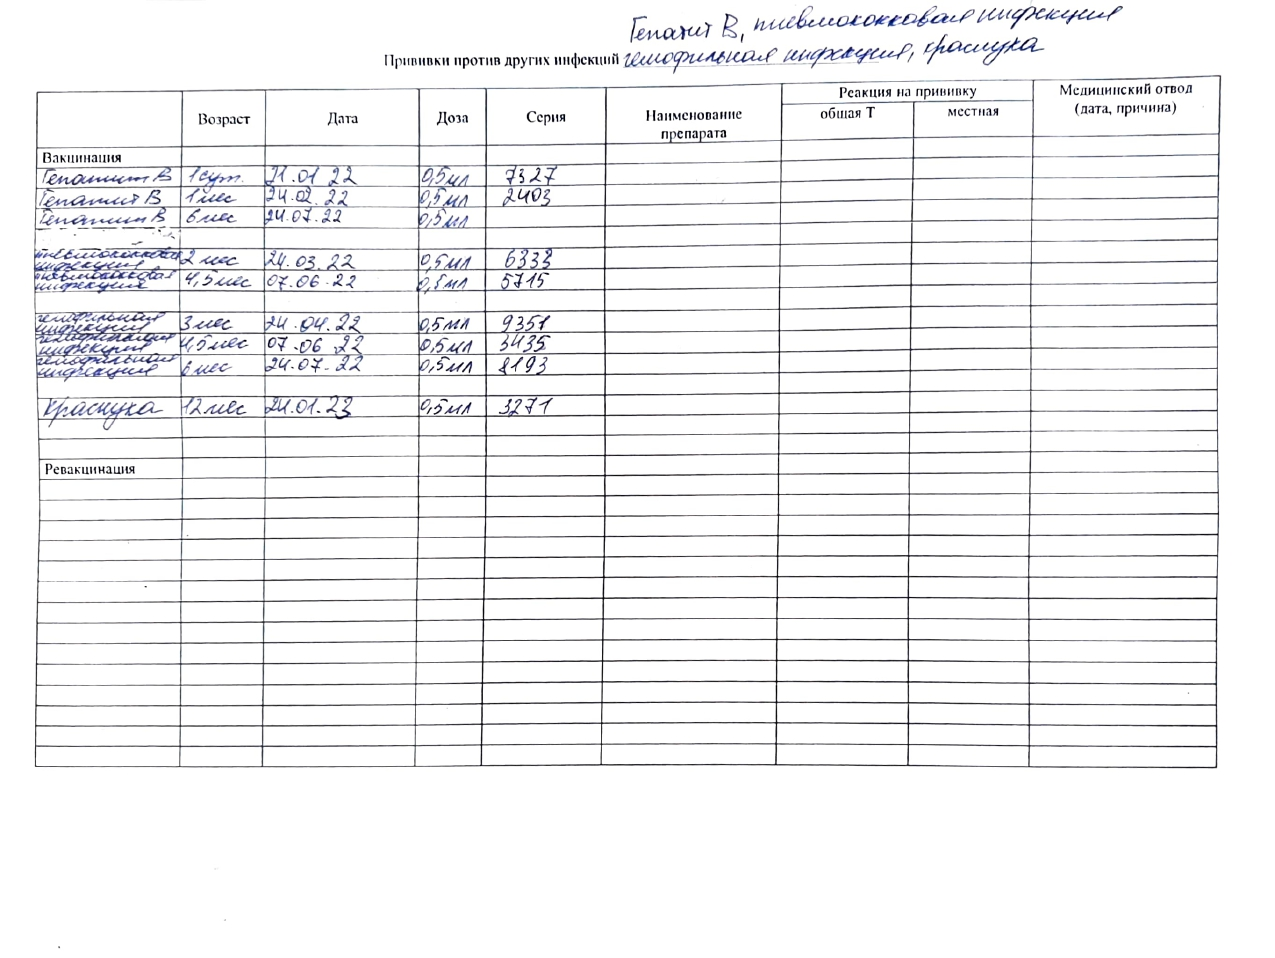 Гепатит В, пневмококковая инфекция
Прививки против других инфекций гемофильная инфекция, краснуха
Возраст Дата Доза Серия Наименование препарата Реакция на прививку Медицинский отвод (дата, причина)
общая Т местная
Вакцинация
Гепатит В 1 сут. 21.01 22 0,5 мл 7327
Гепатит В 1 мес 24.02.22 0,5 мл 2403
Гепатит В 6 мес 24.07.22 0,5 мл
пневмококковая инфекция 2 мес 24.03.22 0,5 мл 6333
пневмококковая инфекция 4,5 мес 07.06.22 0,5 мл 5715
гемофильная инфекция 3 мес 24.04.22 0,5 мл 9351
гемофильная инфекция 4,5 мес 07.06 22 0,5 мл 3435
гемофильная инфекция 6 мес 24.07.22 0,5 мл 8193
краснуха 12 мес 24.01.23 0,5 мл 3271
Ревакцинация